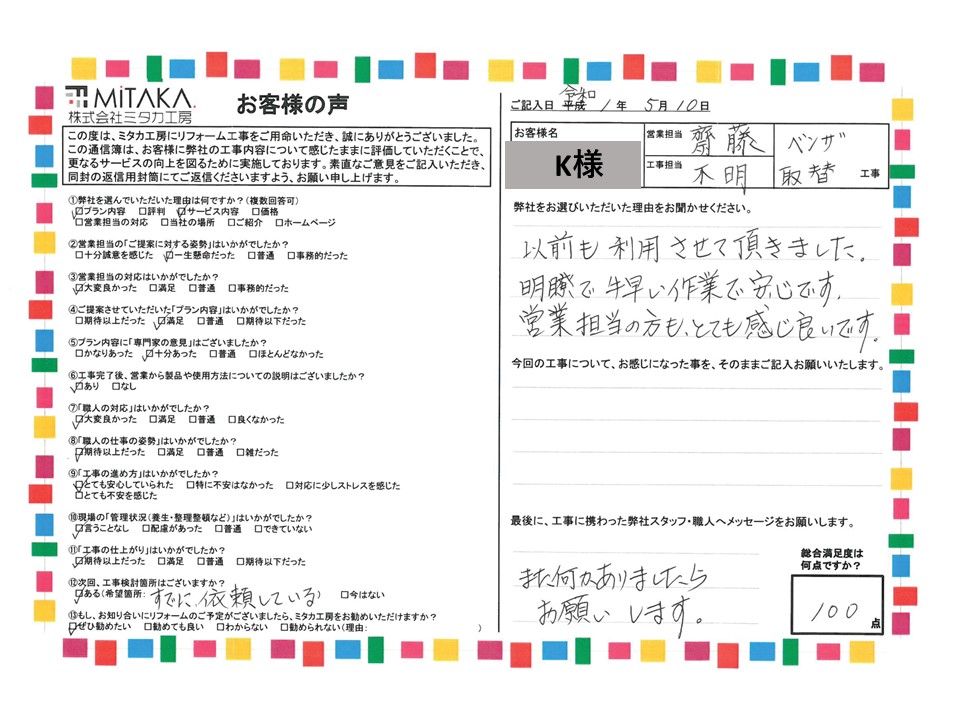 MiTAKA
株式会社ミタカ工房
お客様の声
この度は、ミタカ工房にリフォーム工事をご用命いただき、誠にありがとうございました。
この通信簿は、お客様に弊社の工事内容について感じたままに評価していただくことで、
更なるサービスの向上を図るために実施しております。素直なご意見をご記入いただき、
同封の返信用封筒にてご返信くださいますよう、お願い申し上げます。
①弊社を選んでいただいた理由は何ですか?(複数回答可)
☑プラン内容 □評判 ☑サービス内容 □価格
□営業担当の対応 □当社の場所 □ご紹介 □ホームページ
②営業担当の「ご提案に対する姿勢」はいかがでしたか?
□十分誠意を感じた ☑一生懸命だった □普通 □事務的だった
③営業担当の対応はいかがでしたか?
☑大変良かった □満足 □普通 □事務的だった
④ご提案させていただいた「プラン内容」はいかがでしたか?
□期待以上だった ☑満足 □普通 □期待以下だった
⑤プラン内容に「専門家の意見」はございましたか?
□かなりあった ☑十分あった □普通 □ほとんどなかった
⑥工事完了後、営業から製品や使用方法についての説明はございましたか?
☑あり □なし
⑦「職人の対応」はいかがでしたか?
☑大変良かった □満足 □普通 □良くなかった
⑧「職人の仕事の姿勢」はいかがでしたか?
☑期待以上だった □満足 □普通 □雑だった
⑨「工事の進め方」はいかがでしたか?
☑とても安心していられた □特に不安はなかった □対応に少しストレスを感じた
□とても不安を感じた
⑩現場の「管理状況(養生・整理整頓など)」はいかがでしたか?
☑言うことなし □配慮があった □普通 □できていない
⑪「工事の仕上がり」はいかがでしたか?
☑期待以上だった □満足 □普通 □期待以下だった
⑫次回、工事検討箇所はございますか?
☑ある(希望箇所: すでに依頼している) □今はない
⑬もし、お知り合いにリフォームのご予定がございましたら、ミタカ工房をお勧めいただけますか?
☑ぜひ勧めたい □勧めても良い □わからない □勧められない(理由: )
令和
ご記入日 平成 1年 5月10日
お客様名
K様
営業担当 齋藤
工事担当 不明
ベンザ
取替 工事
弊社をお選びいただいた理由をお聞かせください。
以前も利用させて頂きました。
明瞭で早い作業で安心です。
営業担当の方も、とても感じ良いです。
今回の工事について、お感じになった事を、そのままご記入お願いいたします。
最後に、工事に携わった弊社スタッフ・職人へメッセージをお願いします。
また何かありましたら
お願いします。
総合満足度は
何点ですか?
100点